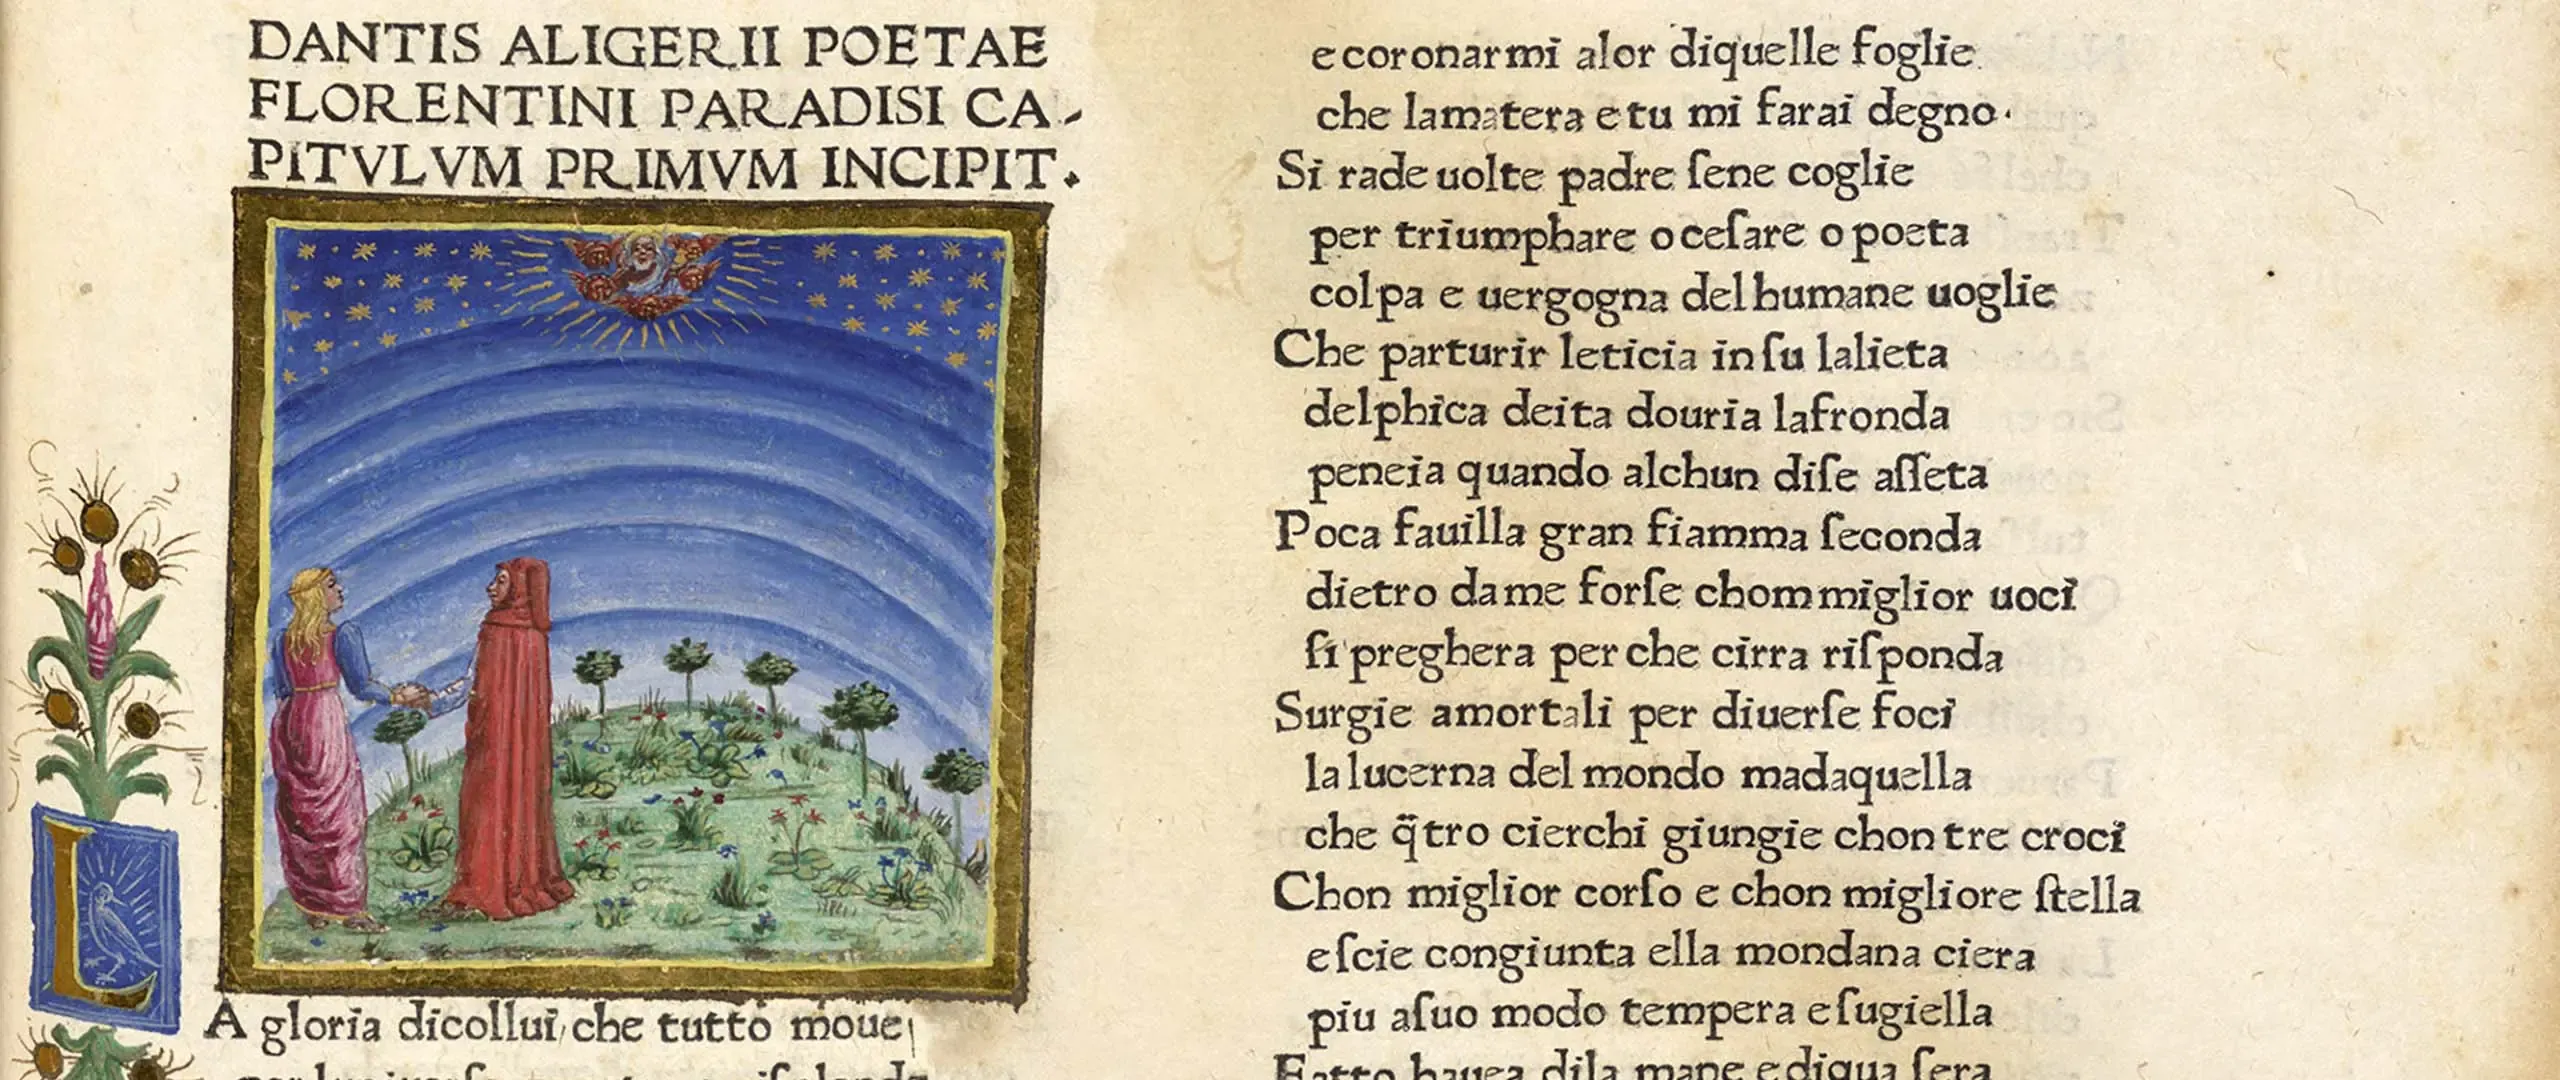 DANTIS ALIGERII POETAE
FLORENTINI PARADISI CA-
PITVLVM PRIMVM INCIPIT.
L
A gloria dicollui, che tutto moue
e coronarmi alor diquelle foglie
che lamatera e tu mi farai degno.
Si rade uolte padre ſene coglie
per triumphare o ceſare o poeta
colpa e uergogna del humane uoglie
Che parturir leticia in ſu lalieta
delphica deita douria lafronda
peneia quando alchun diſe aſſeta
Poca fauilla gran fiamma ſeconda
dietro da me forſe chom miglior uoci
ſi preghera per che cirra riſponda
Surgie amortali per diuerſe foci
la lucerna del mondo madaquella
che q̃tro cierchi giungie chon tre croci
Chon miglior corſo e chon migliore ſtella
eſcie congiunta ella mondana ciera
piu aſuo modo tempera e ſugiella
Fatto hauea dila mane e diqua ſera